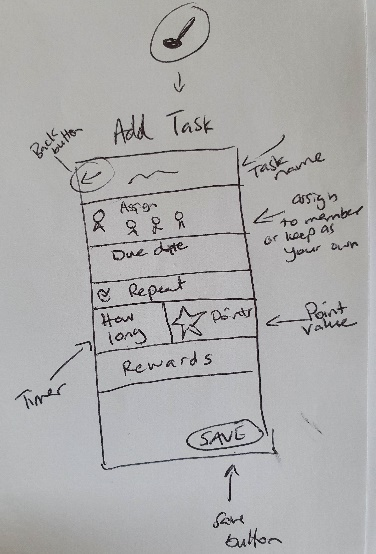 Add Task
Back
button
Task
name
Assign
assign
to member
or keep as
your own
Due date
Repeat
How
long
Points
Point
value
Timer
Rewards
SAVE
Save
button